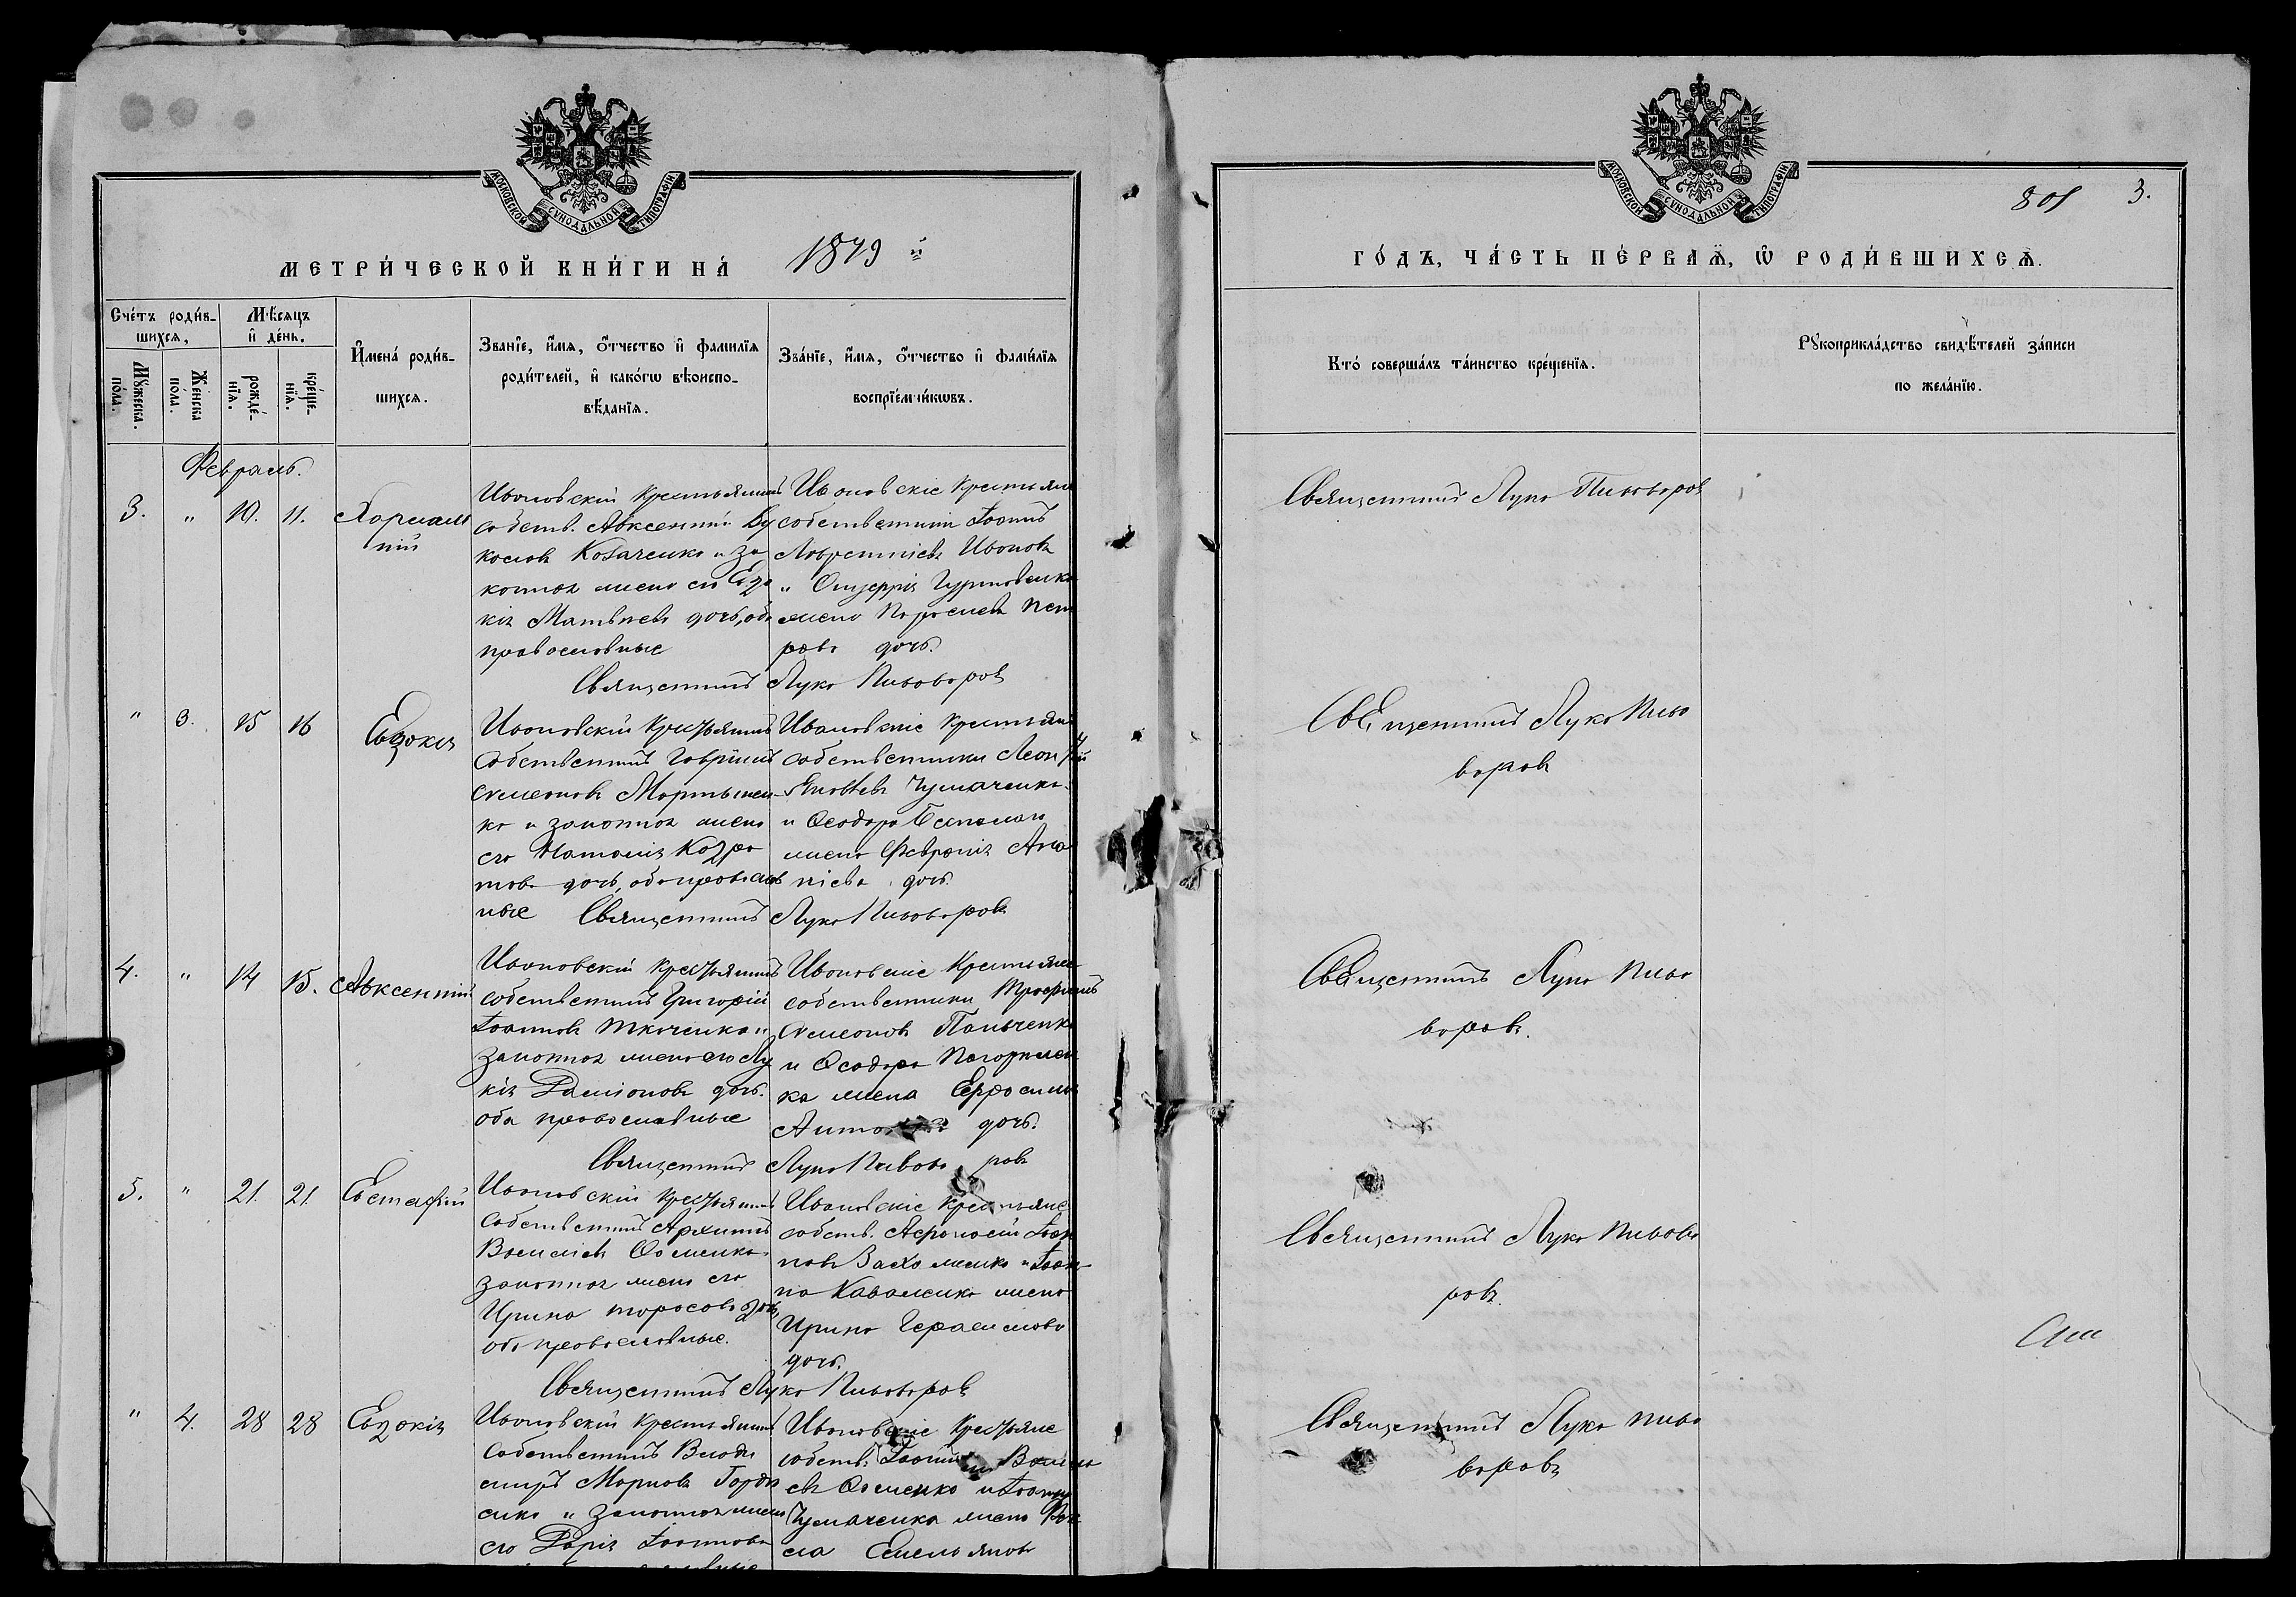 МОСКОВСКОЙ СѴНОДАЛЬНОЙ ТИПОГРАФІИ
МЕТРИ́ЧЕСКОЙ КНИ́ГИ НА́ 1879 й
Сче́тъ роди́в-
шихся,
Мꙋ́жеска
по́ла.
Же́нска
по́ла.
Мѣ́сяцъ
и҆ де́нь.
рожде́-
нїя.
креще́-
нїя.
И҆мена̀ роди́в-
шихся.
Зва́нїе, и҆́мя, ѻ҆́тчество и҆ фами́лїя
роди́телей, и҆ како́гѡ вѣ̑роиспо-
вѣ́данїя.
Зва́нїе, и҆́мя, ѻ҆́тчество и҆ фами́лїя
воспрїе́мникѡвъ.
Февраль.
3. " 10. 11. Харлам
пій
Ивановскій крестьянинъ
собств. Авксентій Лу
кновъ Козаченко и за
конная жена его Евдо
кія Матвѣева дочь, оба
православные
Ивановскіе крестьяне
собственники Іоаннъ
Лаврентіевъ Ивановъ
жена Параскева Пет
рова дочь.
Священникъ Лука Пивоваровъ
" 3. 15 16 Евдокія
Ивановскій крестьянинъ
собственникъ Гавріилъ
Симеоновъ Мартынен
ко и законная жена
его Наталія Кодра
това дочь, оба православ
ные
Ивановскіе крестьяне
собственники Леонтій
Чумаченко
и Ѳеодора
жена Февронія Ана
ніева дочь.
Священникъ Лука Пивоваровъ
4. " 14 15. Авксентій
Ивановскій крестьянинъ
собственникъ Григорій
Іоанновъ Ткаченко и
законная жена его Лу
кія Даміонова дочь.
оба православные
Ивановскіе крестьяне
собственники Трофимъ
Симеоновъ Панченко
и Ѳеодора Погорилен
ка жена Ефросинія
дочь.
Священникъ Лука Пивоваровъ
5. " 21. 21. Евстафій
Ивановскій крестьянинъ
собственникъ Архипъ
Василіевъ Ѳоменко
законная жена его
Ирина Тарасова дочь,
оба православные.
Ивановскіе крестьяне
собств. Аѳанасій Іоан
новъ и Іоан
на Коваленко жена
Ирина Герасимова
дочь.
Священникъ Лука Пивоваровъ
" 4. 28 28 Евдокія
Ивановскій крестьянинъ
собственникъ Влади
миръ Марковъ Горди
енко и законная жена
его Дарія Іоаннова
Ивановскіе крестьяне
собств. Іоаннъ Василі
евъ Ѳоменко и Іоанна
Чумаченка жена Вас
са Емельянова
МОСКОВСКОЙ СѴНОДАЛЬНОЙ ТИПОГРАФІИ
801 3.
ГО́ДЪ, ЧА́СТЬ ПЕ́РВАѦ, Ѡ҆ РОДИ́ВШИХСѦ.
Кто̀ соверша́лъ та́инство креще́нїя.
Рꙋкоприкла́дство свидѣ́телей за́писи
по жела́нїю.
Священникъ Лука Пивоваровъ
Священникъ Лука Пиво
варовъ
Священникъ Лука Пиво
варовъ.
Священникъ Лука Пивова
ровъ.
Священникъ Лука Пиво
варовъ